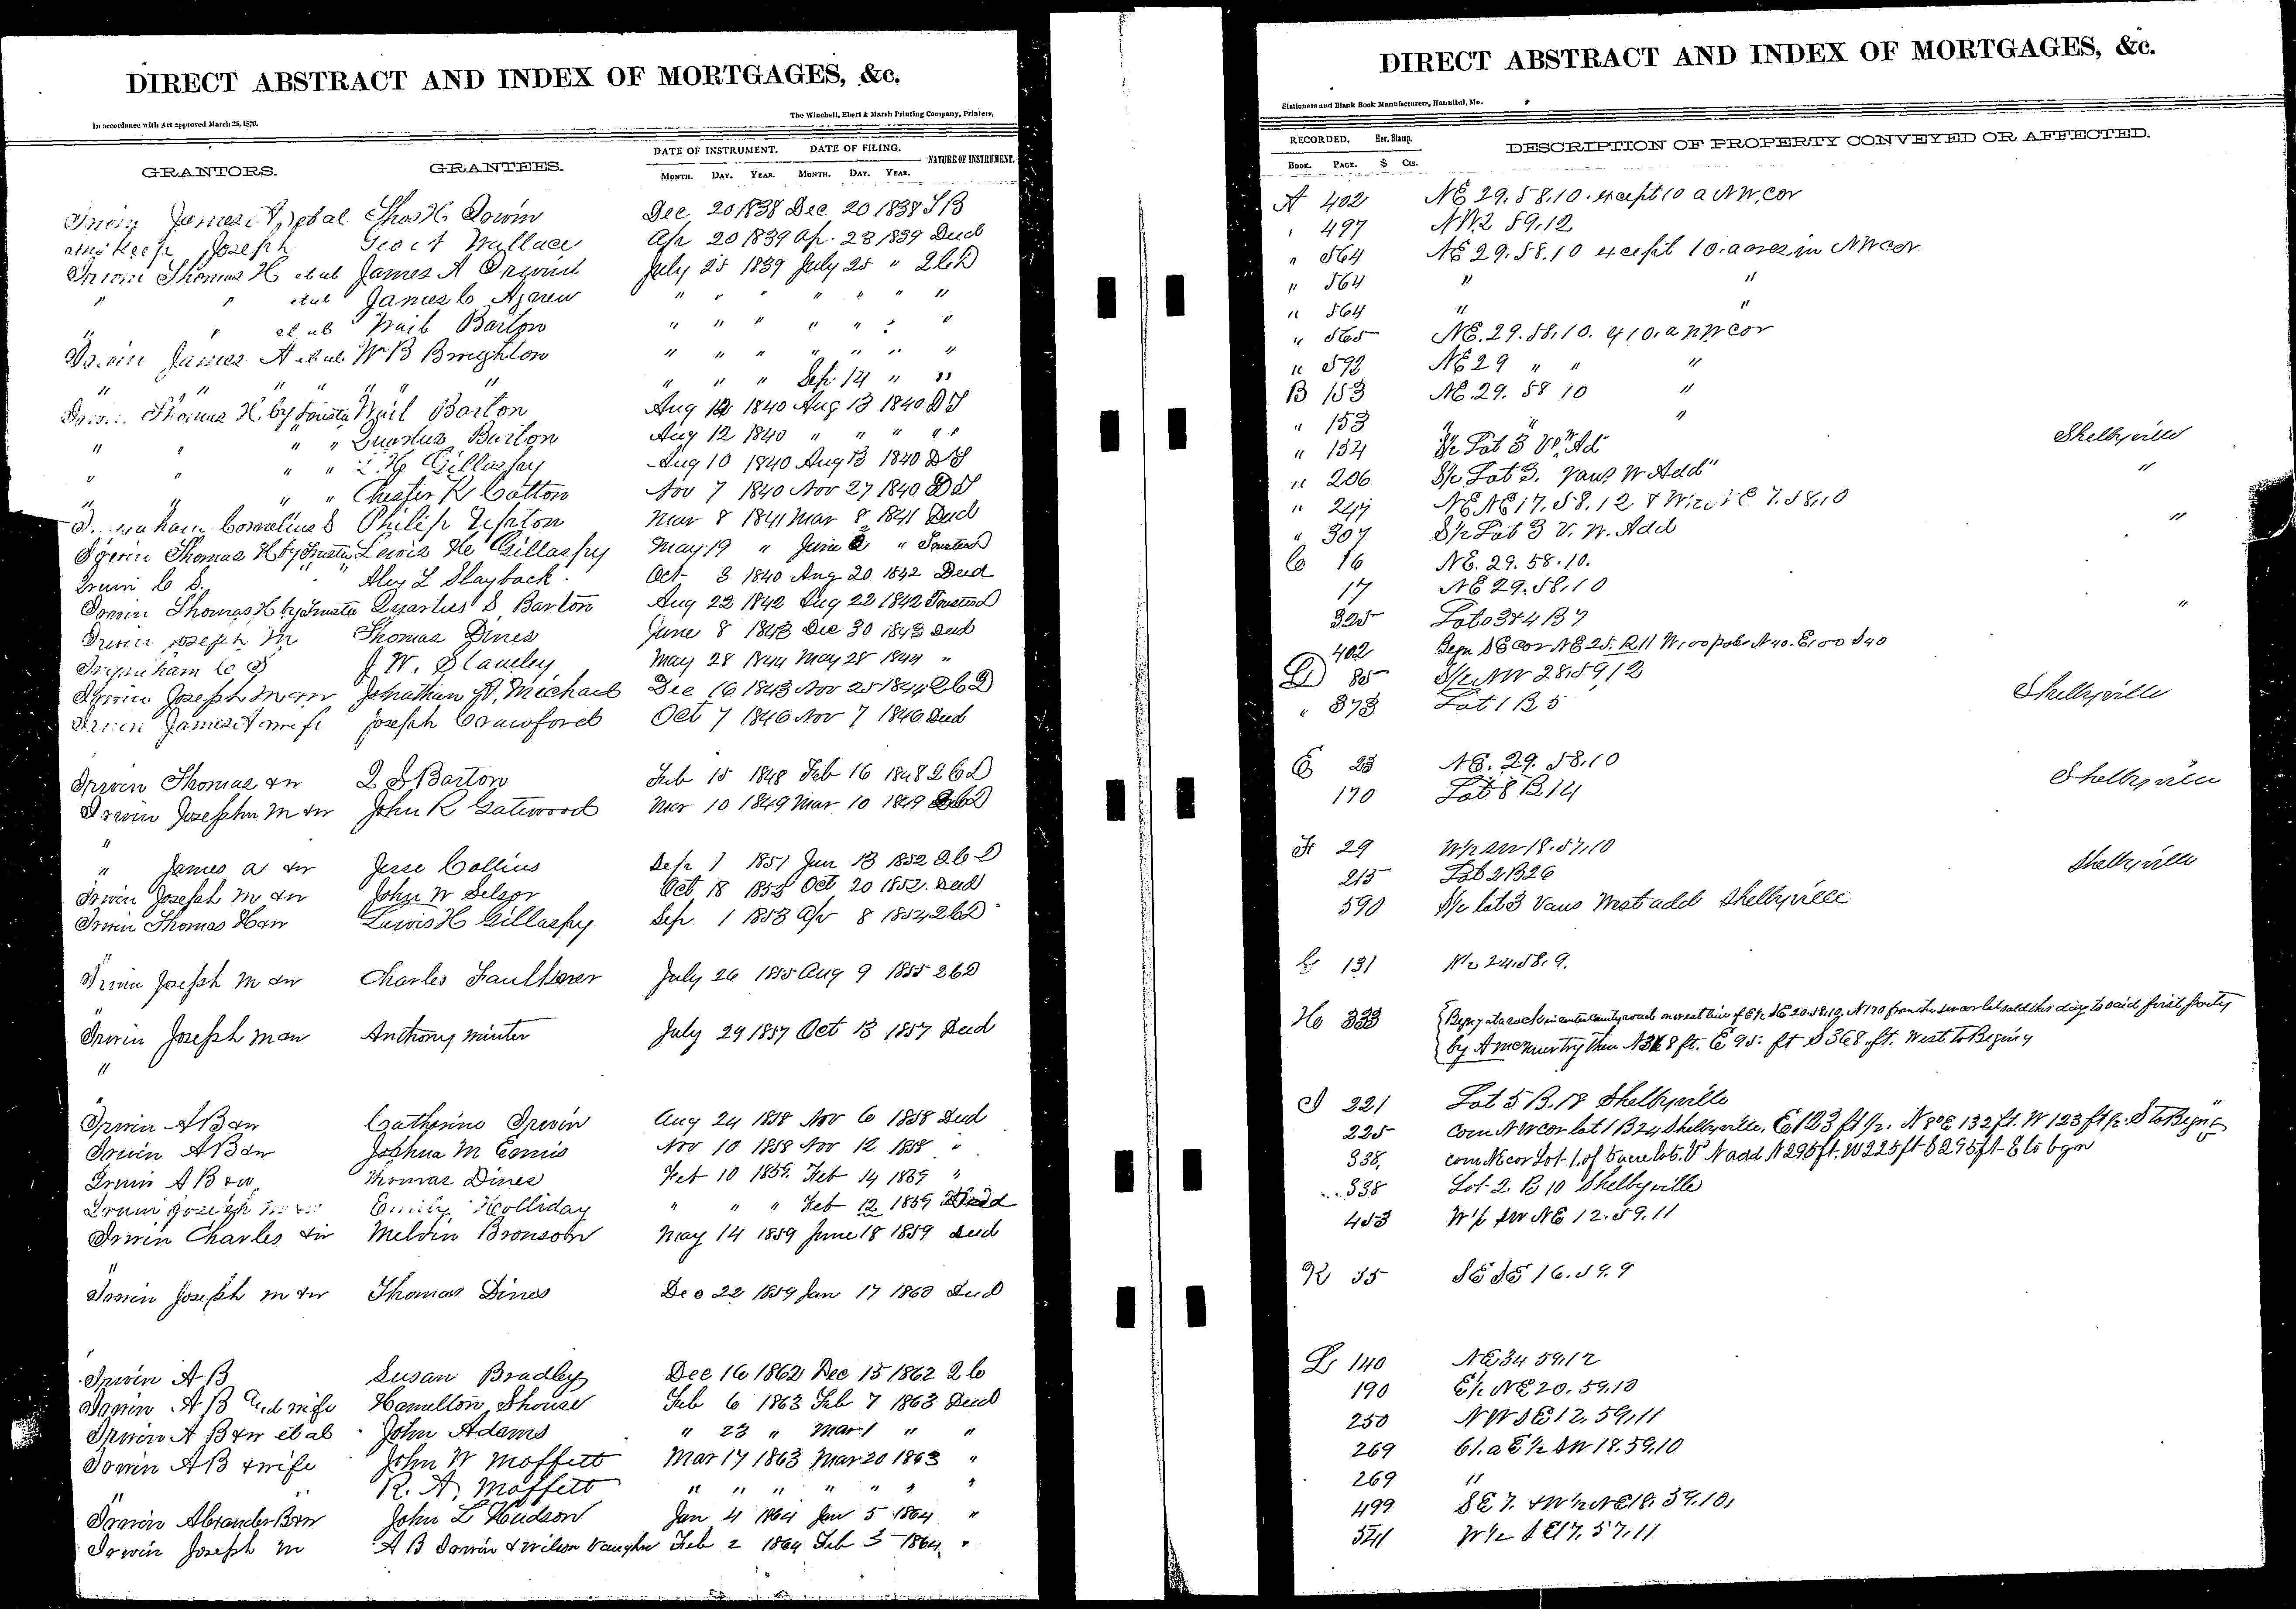 DIRECT ABSTRACT AND INDEX OF MORTGAGES, &c.
In accordance with Act approved March 25, 1870.
The Winchell, Ebert & Marsh Printing Company, Printers,
GRANTORS. GRANTEES. DATE OF INSTRUMENT. DATE OF FILING. NATURE OF INSTRUMENT.
MONTH. DAY. YEAR. MONTH. DAY. YEAR.
Irwin James A, et al Thos H. Irwin Dec 20 1838 Dec 20 1838 TB
Joseph Geo A Wallace Apr 20 1839 Apr. 23 1839 Deed
Irwin Thomas H et al James A Irwin July 25 1839 July 25 " 2 C D
" " et al James C Agnew " " " " " " "
" " et al Barton " " " " " " "
Irwin James A et al Wm B Broughton " " " " " " "
" " " " " " " " Sep. 14 " "
Irwin Thomas H by Trustee Barton Aug 12 1840 Aug 13 1840 DT
" " " " Quartus Barton Aug 12 1840 " " " " "
" " " " L H Gillaspy Aug 10 1840 Aug 13 1840 DT
" " " " Chester K Cotton Nov 7 1840 Nov 27 1840 DT
Cornelius S Philip Upton Mar 8 1841 Mar 8 1841 Deed
Irwin Thomas H by Trustee Lewis H Gillaspy May 19 " June 2 " Trusteed
Irwin C S. " " Alex L Slayback Oct 3 1840 Aug 20 1842 Deed
Irwin Thomas H by Trustee Quartus S Barton Aug 22 1842 Aug 22 1842 Trusteed
Irwin Joseph M Thomas Dines June 8 1843 Dec 30 1843 Deed
C S J W. May 28 1844 May 28 1844 "
Irwin Joseph M & w Jonathan Michael Dec 16 1843 Nov 25 1844 2 C D
Irwin James A & wife Joseph Crawford Oct 7 1846 Nov 7 1846 Deed
Irwin Thomas & w Q S Barton Feb 15 1848 Feb 16 1848 2 C D
Irwin Joseph M & w John R Gatewood Mar 10 1849 Mar 10 1849 2 C D
"
" James A & w Jesse Collins Sep 1 1851 Jan 13 1852 2 C D
Irwin Joseph M & w John W Selsor Oct 18 1852 Oct 20 1852. Deed
Irwin Thomas H & w Lewis H Gillaspy Sep. 1 1853 Apr 8 1854 2 C D
Irwin Joseph M & w Charles Faulkner July 26 1855 Aug 9 1855 2 C D
Irwin Joseph M & w Anthony Minter July 29 1857 Oct 13 1857 Deed
"
Irwin A B & w Catharine Irwin Aug 24 1858 Nov 6 1858 Deed
Irwin A B & w Joshua M Ennis Nov 10 1858 Nov 12 1858 "
Irwin A B & w. Thomas Dines Feb 10 1859. Feb 14 1859 "
Irwin Joseph M & w Emily Holliday " " " Feb 12 1859 Deed
Irwin Charles & w Melvin Bronson May 14 1859 June 18 1859 Deed
"
Irwin Joseph M & w Thomas Dines Dec 22 1859 Jan 17 1860 Deed
Irwin A B Susan Bradley Dec 16 1862 Dec 15 1862 2 C
Irwin A B and wife Hamelton Shouse Feb 6 1863 Feb 7 1863 Deed
Irwin A B & w et al John Adams " 23 " Mar 1 " "
Irwin A B & wife John W Moffett Mar 17 1863 Mar 20 1863 "
" " R. A. Moffett " " " " " " "
Irwin Alexander B & w John L Hudson Jan 4 1864 Jan 5 1864 "
Irwin Joseph M A B Irwin & Wilson Vaughn Feb 2 1864 Feb 3 1864 "
DIRECT ABSTRACT AND INDEX OF MORTGAGES, &c.
Stationers and Blank Book Manufacturers, Hannibal, Mo.
RECORDED. Rev. Stamp. DESCRIPTION OF PROPERTY CONVEYED OR AFFECTED.
BOOK. PAGE. $ Cts.
A 402 NE 29.58.10. except 10 a NW. cor
" 497 NW. 2 59.12
" 564 NE 29.58.10 except 10. acres in NW cor
" 564 " "
" 564 " "
" 565 NE. 29.58.10. 10. a NW cor
" 592 NE 29 " " "
B 153 NE. 29. 58 10 "
" 153 " "
" 154 S½ Lot 3 Ad Shelbyville
" 206 S½ Lot 3. Vans W Add "
" 247 NE NE 17. 58. 12 & 7. 58.10
" 307 S½ Lot 3 V. W. Add "
C 16 NE. 29. 58. 10.
17 NE 29.58.10
325 Lot 3 & 4 B 7 "
402 Begn SE cor NE 25. R 11 W. 100 poles N 40. E 100 S 40
D 85 NW 28.59 12
" 373 Lot 1 B 5 Shelbyville
E 23 NE. 29. 58.10
170 Lot 8 B 14 Shelbyville
F 29 W½ SW 18.57.10
215 Lot 2 B 26 Shelbyville
590 S½ lot 3 Vans West add Shelbyville
G 131 24.58.9.
H 333 Begng at a rock in center county road on west line of E½ SE 20.58.10, N 170 from the sw cor lot sold this day to said first party
by A McMurtry then N 368 ft. E 95. ft S 368. ft. West to Begining
I 221 Lot 5 B. 18 Shelbyville
225 com NW cor lot 1 B 24 Shelbyville. E 123 ft N 132 ft. W 123 ft S to Begng
338. com NE cor Lot 1, of 5 acre lots. V N add N 295 ft. W 225 ft S 295 ft E to begn
338 Lot 2 B 10 Shelbyville
453 W½ SW NE 12.59.11
K 35 SE SE 16.59.9
L 140 NE 34 59.12
190 E½ NE 20. 59.10
250 NW SE 12. 59.11
269 61. a E½ SW 18.59.10
269 "
499 SE 7. & W½ NE 18. 59.10.
541 W½ SE 17. 57.11